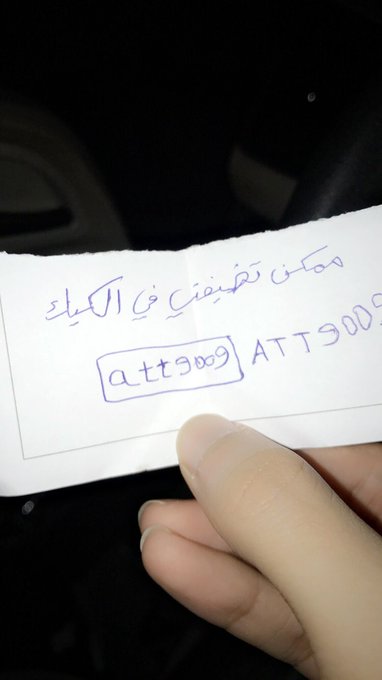 ممكن تضيفني في الكيك
att9009 ATT9009